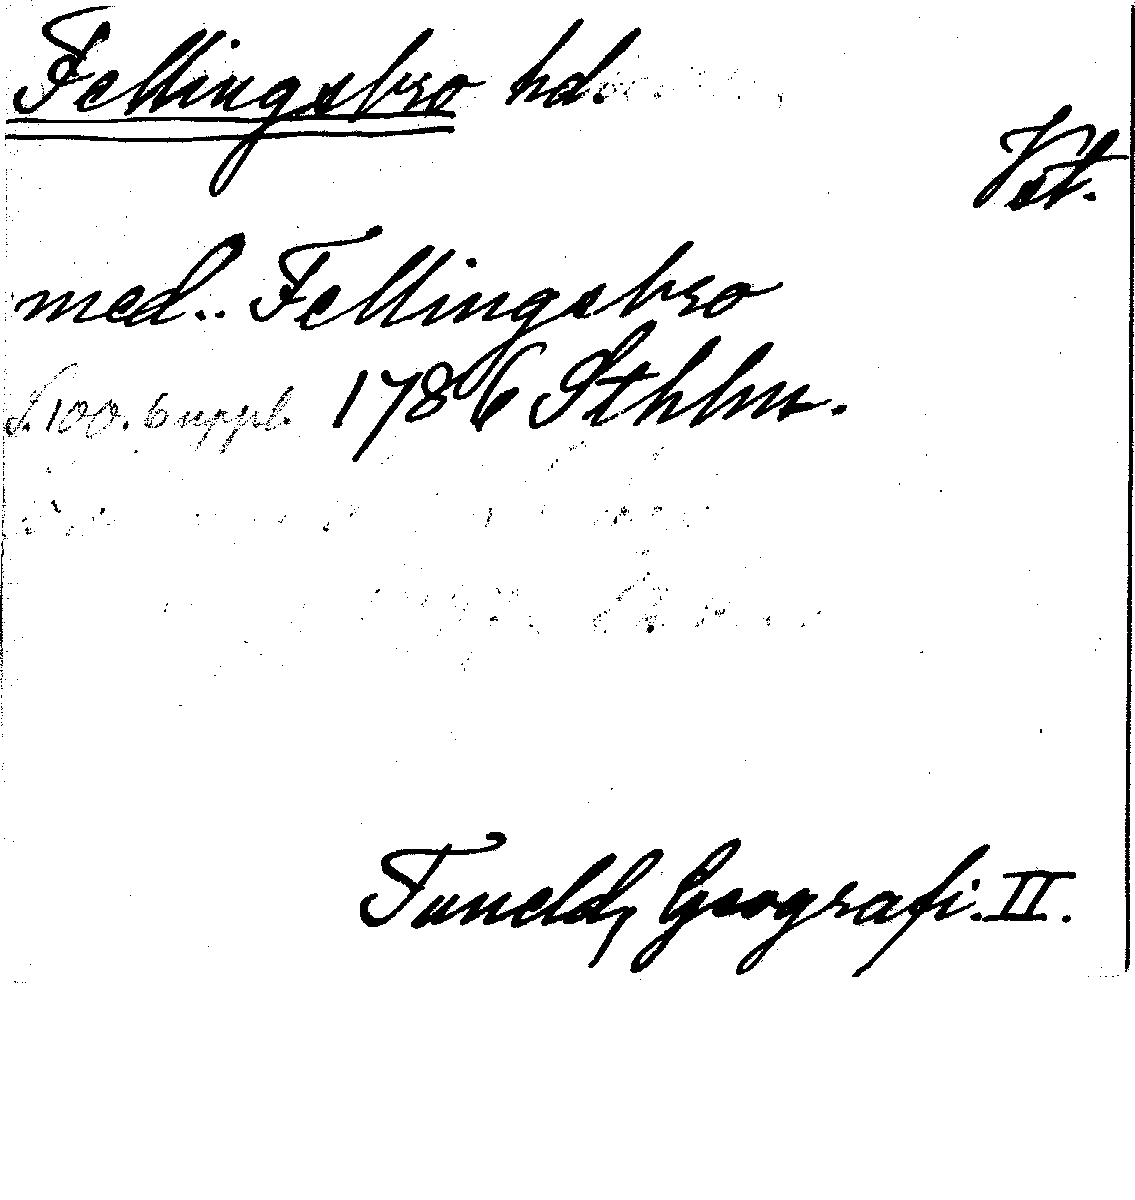 Fellingsbro hd.
Vst.
med.. Fellingsbro
S. 100. suppl. 1786 Sthlm.
Tuneld, Geografi. II.